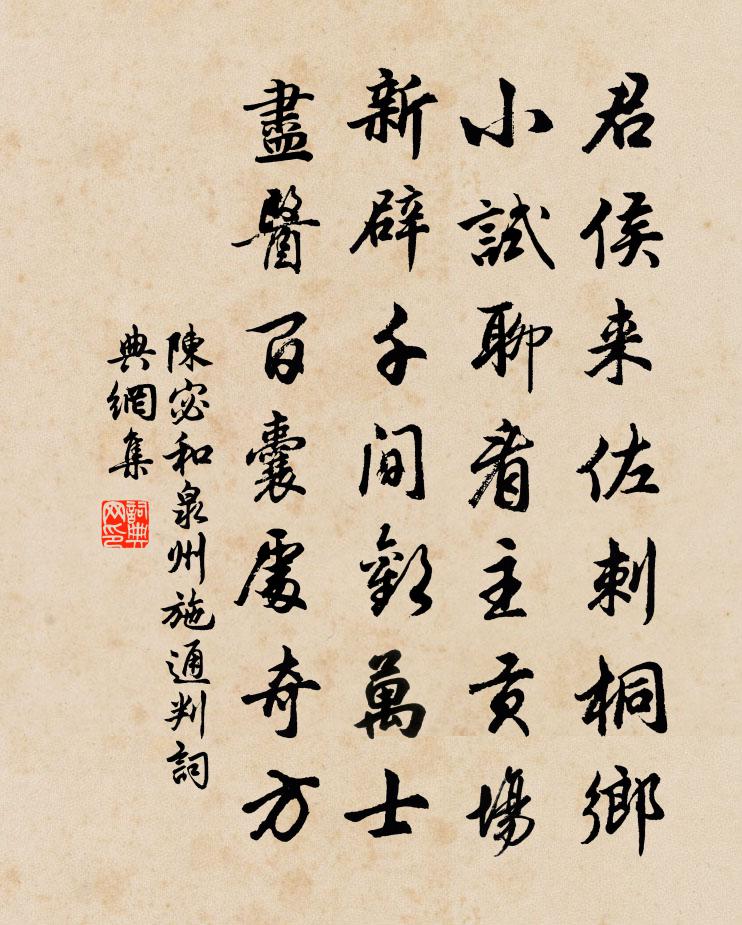 君侯来佐刺桐鄉
小試聊看主貢場
新辟千间歡萬士
盡醫百囊處奇方
陳宓和泉州施通判詞
典網集
詞典
网印